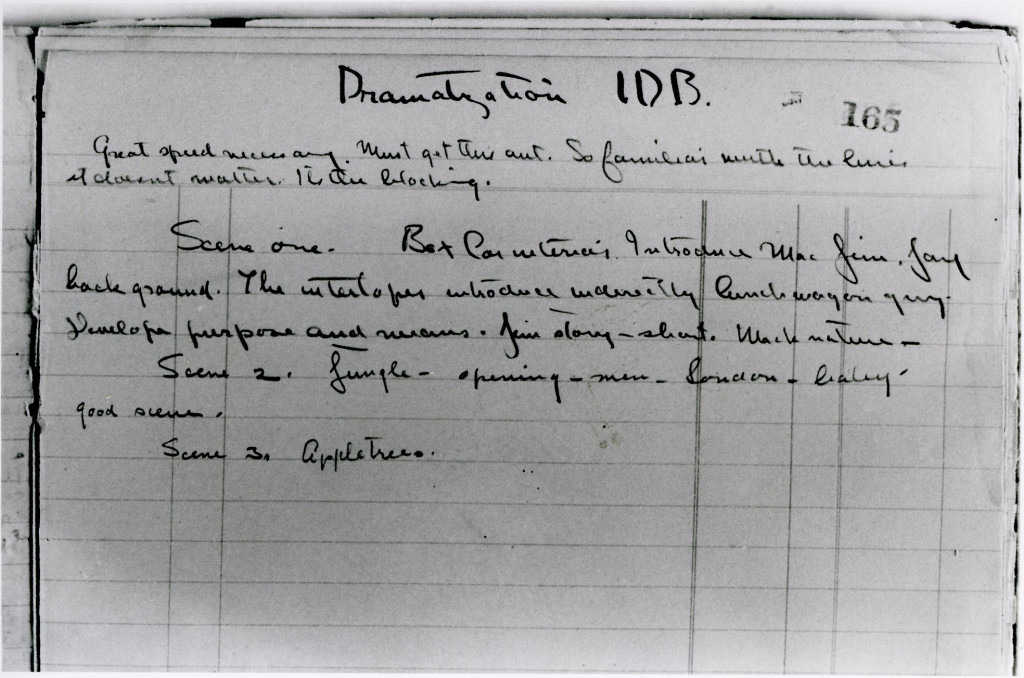 Dramatization IDB.
165
Great speed necessary. Must get this out. So familiar with the lines
it doesnt matter. Its the blocking.
Scene one. Box Car interior. Introduce Mac Jim. Jay
back ground. The interloper introduce indirectly lunch wagon guy.
Develope purpose and means. Jim story - short. Mack nature -
Scene 2. Jungle - opening - men - London - baby -
good scene.
Scene 3. Appletrees.